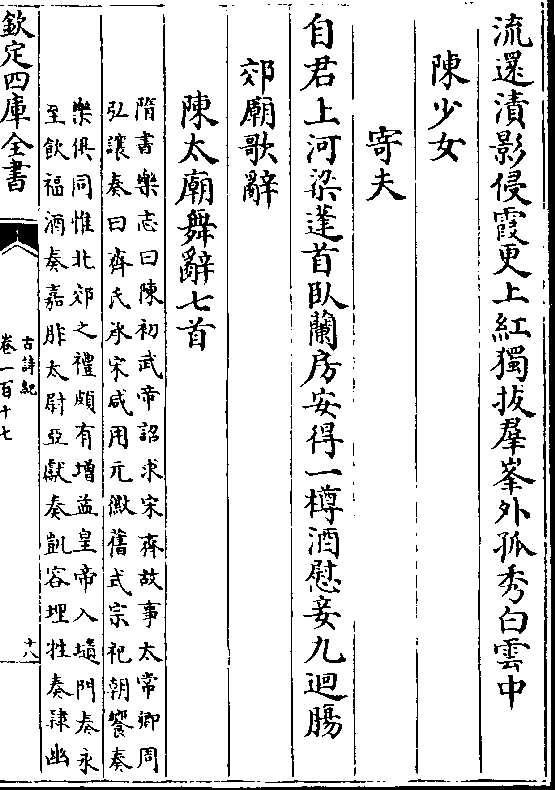 流還漬影侵霞更上紅獨拔羣峯外孤秀白雲中
陳少女
寄夫
自君上河梁蓬首臥蘭房安得一樽酒慰妾九迴腸
郊廟歌辭
陳太廟舞辭七首
隋書樂志曰陳初武帝詔求宋齊故事太常卿周
弘讓奏曰齊氏承宋咸用元徽舊式宗祀朝饗奏
樂俱同惟北郊之禮頗有增益皇帝入壝門奏永
至飲福酒奏嘉胙太尉亞獻奏凱容埋牲奏隸幽
欽定四庫全書
古詩紀
卷一百十七
十八